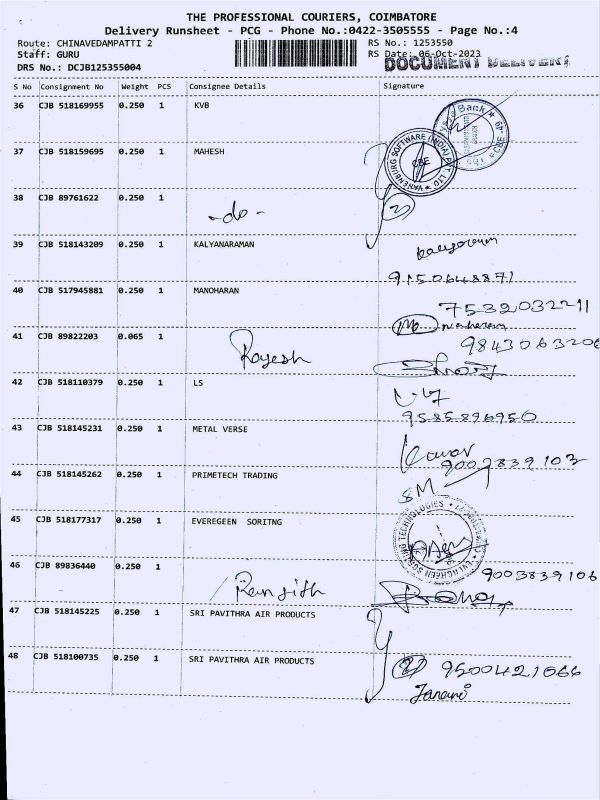 THE PROFESSIONAL COURIERS, COIMBATORE
Delivery Runsheet - PCG - Phone No.:0422-3505555 - Page No.:4
Route: CHINAVEDAMPATTI 2 RS No.: 1253550
Staff: GURU RS Date: 06-Oct-2023
DRS No.: DCJB125355004 DOCUMENT DELIVERY
S No Consignment No Weight PCS Consignee Details Signature
36 CJB 518169955 0.250 1 KVB
Bank CBE-49
VANENBURG SOFTWARE (INDIA) PVT LTD CBE
37 CJB 518159695 0.250 1 MAHESH
38 CJB 89761622 0.250 1 -do- 2
39 CJB 518143209 0.250 1 KALYANARAMAN
9150648871
40 CJB 517945881 0.250 1 MANOHARAN 7532032211
41 CJB 89822203 0.065 1 Rajesh
42 CJB 518110379 0.250 1 LS
9585896950
43 CJB 518145231 0.250 1 METAL VERSE
9003839103
44 CJB 518145262 0.250 1 PRIMETECH TRADING SM
45 CJB 518177317 0.250 1 EVEREGEEN SORITNG
EVERGREEN SORING TECHNOLOGIES
46 CJB 89836440 0.250 1 Ranjith 9003839106
47 CJB 518145225 0.250 1 SRI PAVITHRA AIR PRODUCTS
48 CJB 518100735 0.250 1 SRI PAVITHRA AIR PRODUCTS 2 9500421066
Janani